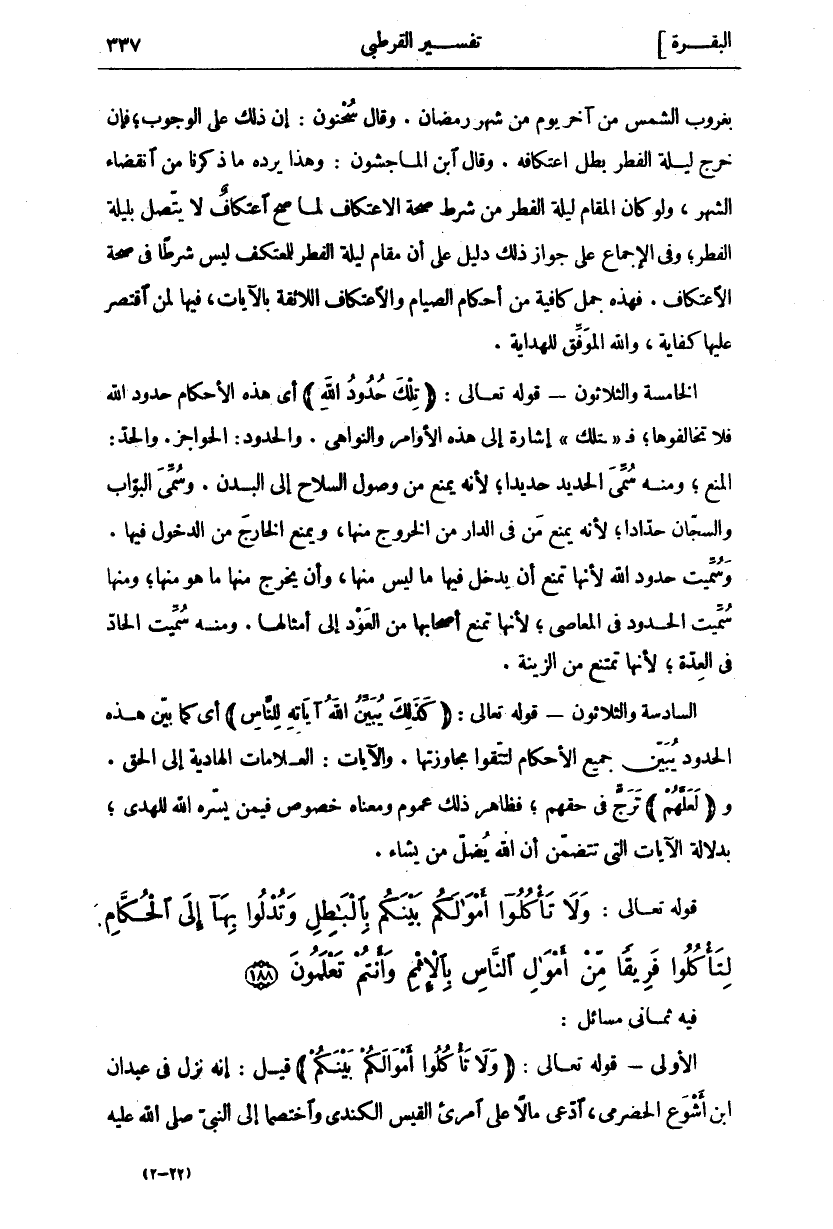 البقـــرة ]
تفســـير القرطبى
٣٣٧
بغروب الشمس من آخر يوم من شهر رمضان . وقال سُحْنون : إن ذلك على الوجوب؛ فإن
خرج ليـلة الفطر بطل اعتكافه . وقال آبن المـاجشون : وهذا يرده ما ذكرنا من آنقضاء
الشهر ، ولو كان المقام ليلة الفطر من شرط صحة الاعتكاف لمـا صح آعتكافٌ لا يتّصل بليلة
الفطر؛ وفى الإجماع على جواز ذلك دليل على أن مقام ليلة الفطر للمعتكف ليس شرطًا فى صحة
الآعتكاف . فهذه جمل كافية من أحكام الصيام والآعتكاف اللائقة بالآيات، فيها لمن آقتصر
عليها كفاية ، والله الموَفِّق للهداية .
الخامسة والثلاثون — قوله تعـالى : ﴿ تِلْكَ حُدُودُ اللَّهِ ﴾ أى هذه الأحكام حدود الله
فلا تخالفوها؛ فـ «ـتلك » إشارة إلى هذه الأوامر والنواهى . والحدود: الحواجز. والحدّ:
المنع ؛ ومنـه سُمِّىَ الحديد حديدا؛ لأنه يمنع من وصول السلاح إلى البـدن . وسُمِّىَ البوّاب
والسجّان حدّادا؛ لأنه يمنع مَن فى الدار من الخروج منها، ويمنع الخارجَ من الدخول فيها .
وَسُمِّيت حدود الله لأنها تمنع أن يدخل فيها ما ليس منها، وأن يخرج منها ما هو منها؛ ومنها
سُمِّيت الحـدود فى المعاصى ؛ لأنها تمنع أصحابها من العَوْد إلى أمثالهـا . ومنـه سُمِّيت الحادّ
فى العِدّة ؛ لأنها تمتنع من الزينة .
السادسة والثلاثون — قوله تعالى : ﴿ كَذَلِكَ يُبَيِّنُ اللَهُ آيَاتِهِ لِلنَّاسِ ﴾ أى كما بيّن هـذه
الحدود يُبَيّن جميع الأحكام لتتّقوا مجاوزتها . والآيات : العـلامات الهادية إلى الحق .
و ﴿ لَعَلَّهُمْ ﴾ تَرَجٍّ فى حقهم ؛ فظاهر ذلك عموم ومعناه خصوص فيمن يسّره الله للهدى ؛
بدلالة الآيات التى تتضمّن أن الله يُضلّ من يشاء .
قوله تعـالى : وَلَا تَأْكُلُوٓا أَمْوَٰلَكُم بَيْنَكُم بِٱلْبَٰطِلِ وَتُدْلُوا بِهَآ إِلَى ٱلْحُكَّامِ
لِتَأْكُلُوا فَرِيقًا مِّنْ أَمْوَٰلِ ٱلنَّاسِ بِٱلْإِثْمِ وَأَنتُمْ تَعْلَمُونَ ١٨٨
فيه ثمـانى مسائل :
الأولى — قوله تعـالى : ﴿ وَلَا تَأْكُلُوا أَمْوَالَكُمْ بَيْنَكُمْ ﴾ قيـل : إنه نزل فى عبدان
ابن أَشْوَع الحضرمى، آدّعى مالًا على آمرئ القيس الكندى وآختصما إلى النبىّ صلى الله عليه
(٢-٢٢)